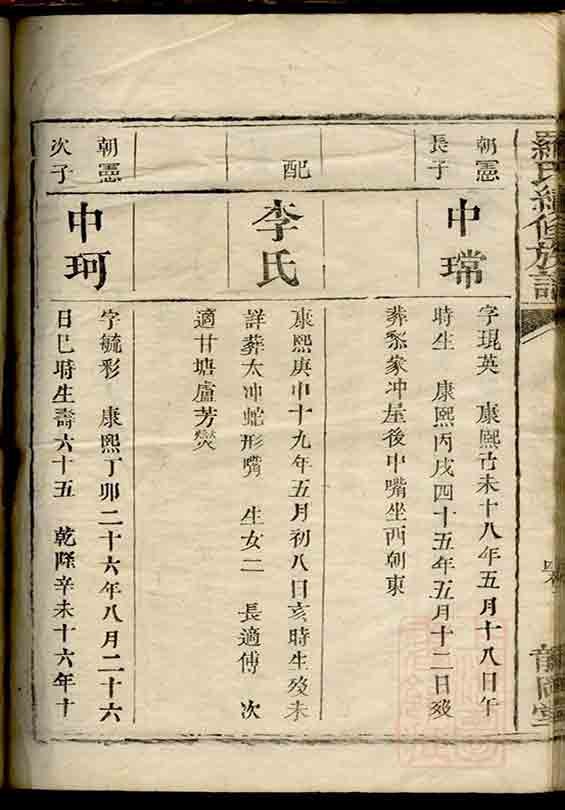 羅氏續修族譜
朝憲
長子
中瑺
字琨英 康熙己未十八年五月十八日午
時生 康熙丙戌四十五年五月十二日歿
葬黎家冲屋後中嘴坐西朝東
配
李氏
康熙庚申十九年五月初八日亥時生歿未
詳葬太冲蛇形嘴 生女二 長適傅 次
適甘塘盧芳爕
朝憲
次子
中珂
字毓彩 康熙丁卯二十六年八月二十六
日巳時生壽六十五 乾隆辛未十六年十